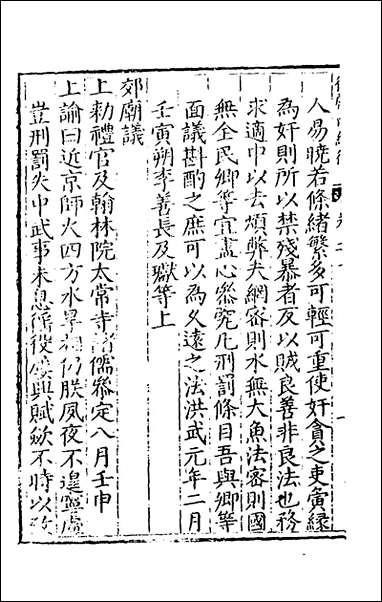 人易曉若條緒繁多可輕可重使奸貪之吏寅緣
為奸則所以禁殘暴者反以賊良善非良法也務
求適中以去煩弊夫網密則水無大魚法密則國
無全民卿等宜盡心叅究凡刑罰條目吾與卿等
面議斟酌之庶可以為久遠之法洪武元年二月
壬寅朔李善長及瓛等上
郊廟議
上勑禮官及翰林院太常寺諸儒叅定八月壬申
上諭曰近京師火四方水旱相仍朕夙夜不遑寧處
豈刑罰失中武事未息徭役屢興賦斂不時以致